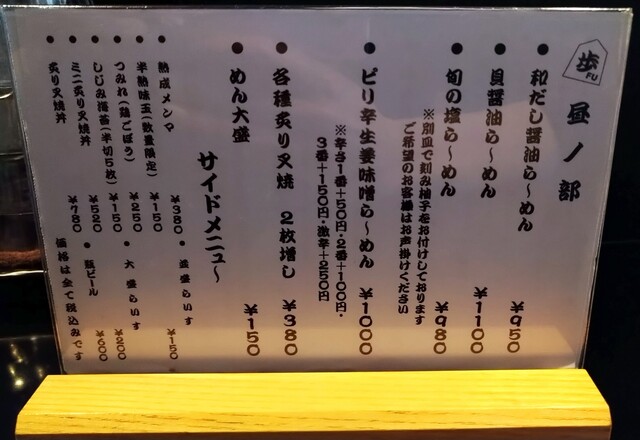 歩
FU
昼ノ部
● 和だし醤油ら〜めん ¥950
● 貝醤油ら〜めん ¥1100
● 旬の塩ら〜めん ¥980
※別皿で刻み柚子をお付けしております
ご希望のお客様はお声掛けください
● ピリ辛生姜味噌ら〜めん ¥1000
※辛さ1番+50円・2番+100円・
3番+150円・激辛+250円
● 各種炙り叉焼 2枚増し ¥380
● めん大盛 ¥150
サイドメニュ〜
● 熟成メンマ ¥380
● 半熟味玉(数量限定) ¥150
● つみれ(鶏ごぼう) ¥250
● しじみ海苔(半切5枚) ¥150
● ミニ炙り叉焼丼 ¥520
● 炙り叉焼丼 ¥780
● 並盛らいす ¥150
● 大盛らいす ¥200
● 瓶ビール ¥600
価格は全て税込みです